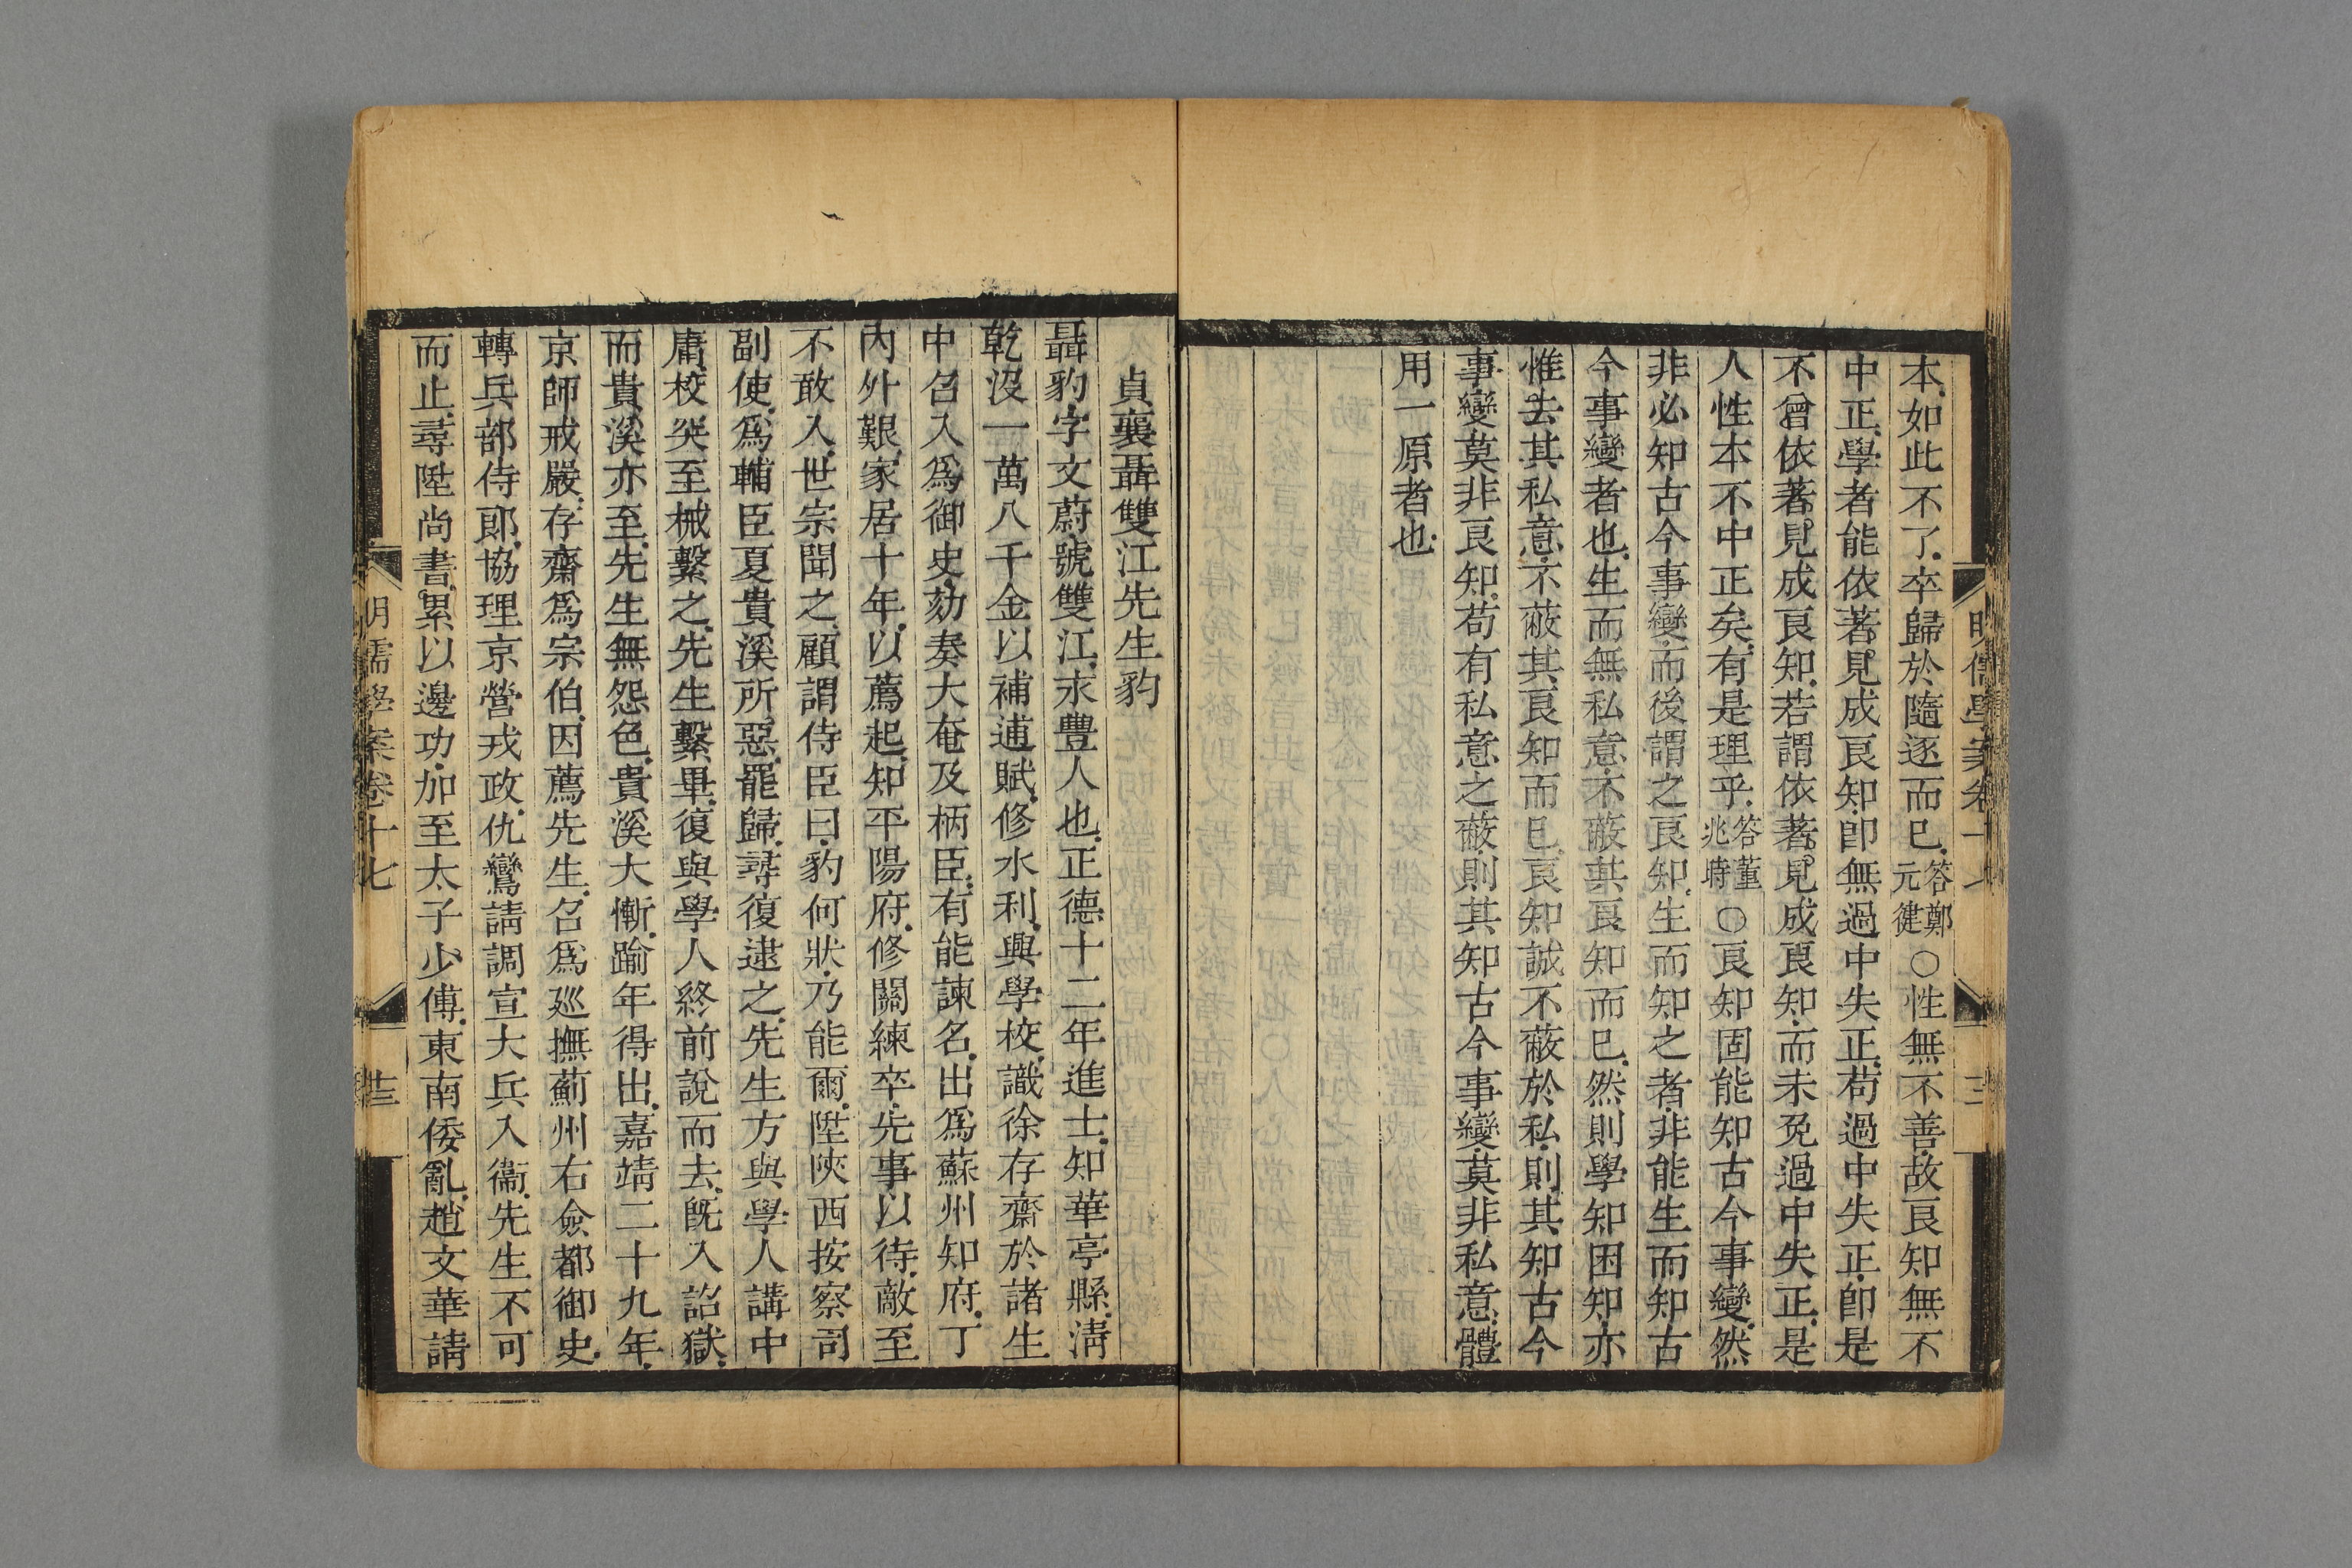 本如此不了卒歸於隨逐而已答鄭元健○性無不善故良知無不
中正學者能依著見成良知即無過中失正苟過中失正即是
不曾依著見成良知若謂依著見成良知而未免過中失正是
人性本不中正矣有是理乎答董兆時○良知固能知古今事變然
非必知古今事變而後謂之良知生而知之者非能生而知古
今事變者也生而無私意不蔽其良知而已然則學知困知亦
惟去其私意不蔽其良知而已良知誠不蔽於私則其知古今
事變莫非良知苟有私意之蔽則其知古今事變莫非私意體
用一原者也
貞襄聶雙江先生豹
聶豹字文蔚號雙江永豐人也正德十二年進士知華亭縣清
乾沒一萬八千金以補逋賦修水利興學校識徐存齋於諸生
中召入爲御史劾奏大奄及柄臣有能諫名出爲蘇州知府丁
內外艱家居十年以薦起知平陽府修關練卒先事以待敵至
不敢入世宗聞之顧謂侍臣曰豹何狀乃能爾陞陝西按察司
副使爲輔臣夏貴溪所惡罷歸尋復逮之先生方與學人講中
庸校突至械繫之先生繫畢復與學人終前說而去旣入詔獄
而貴溪亦至先生無怨色貴溪大慚踰年得出嘉靖二十九年
京師戒嚴存齋爲宗伯因薦先生召爲巡撫薊州右僉都御史
轉兵部侍郎協理京營戎政仇鸞請調宣大兵入衞先生不可
而止尋陞尚書累以邊功加至太子少傅東南倭亂趙文華請
明儒學案卷十七